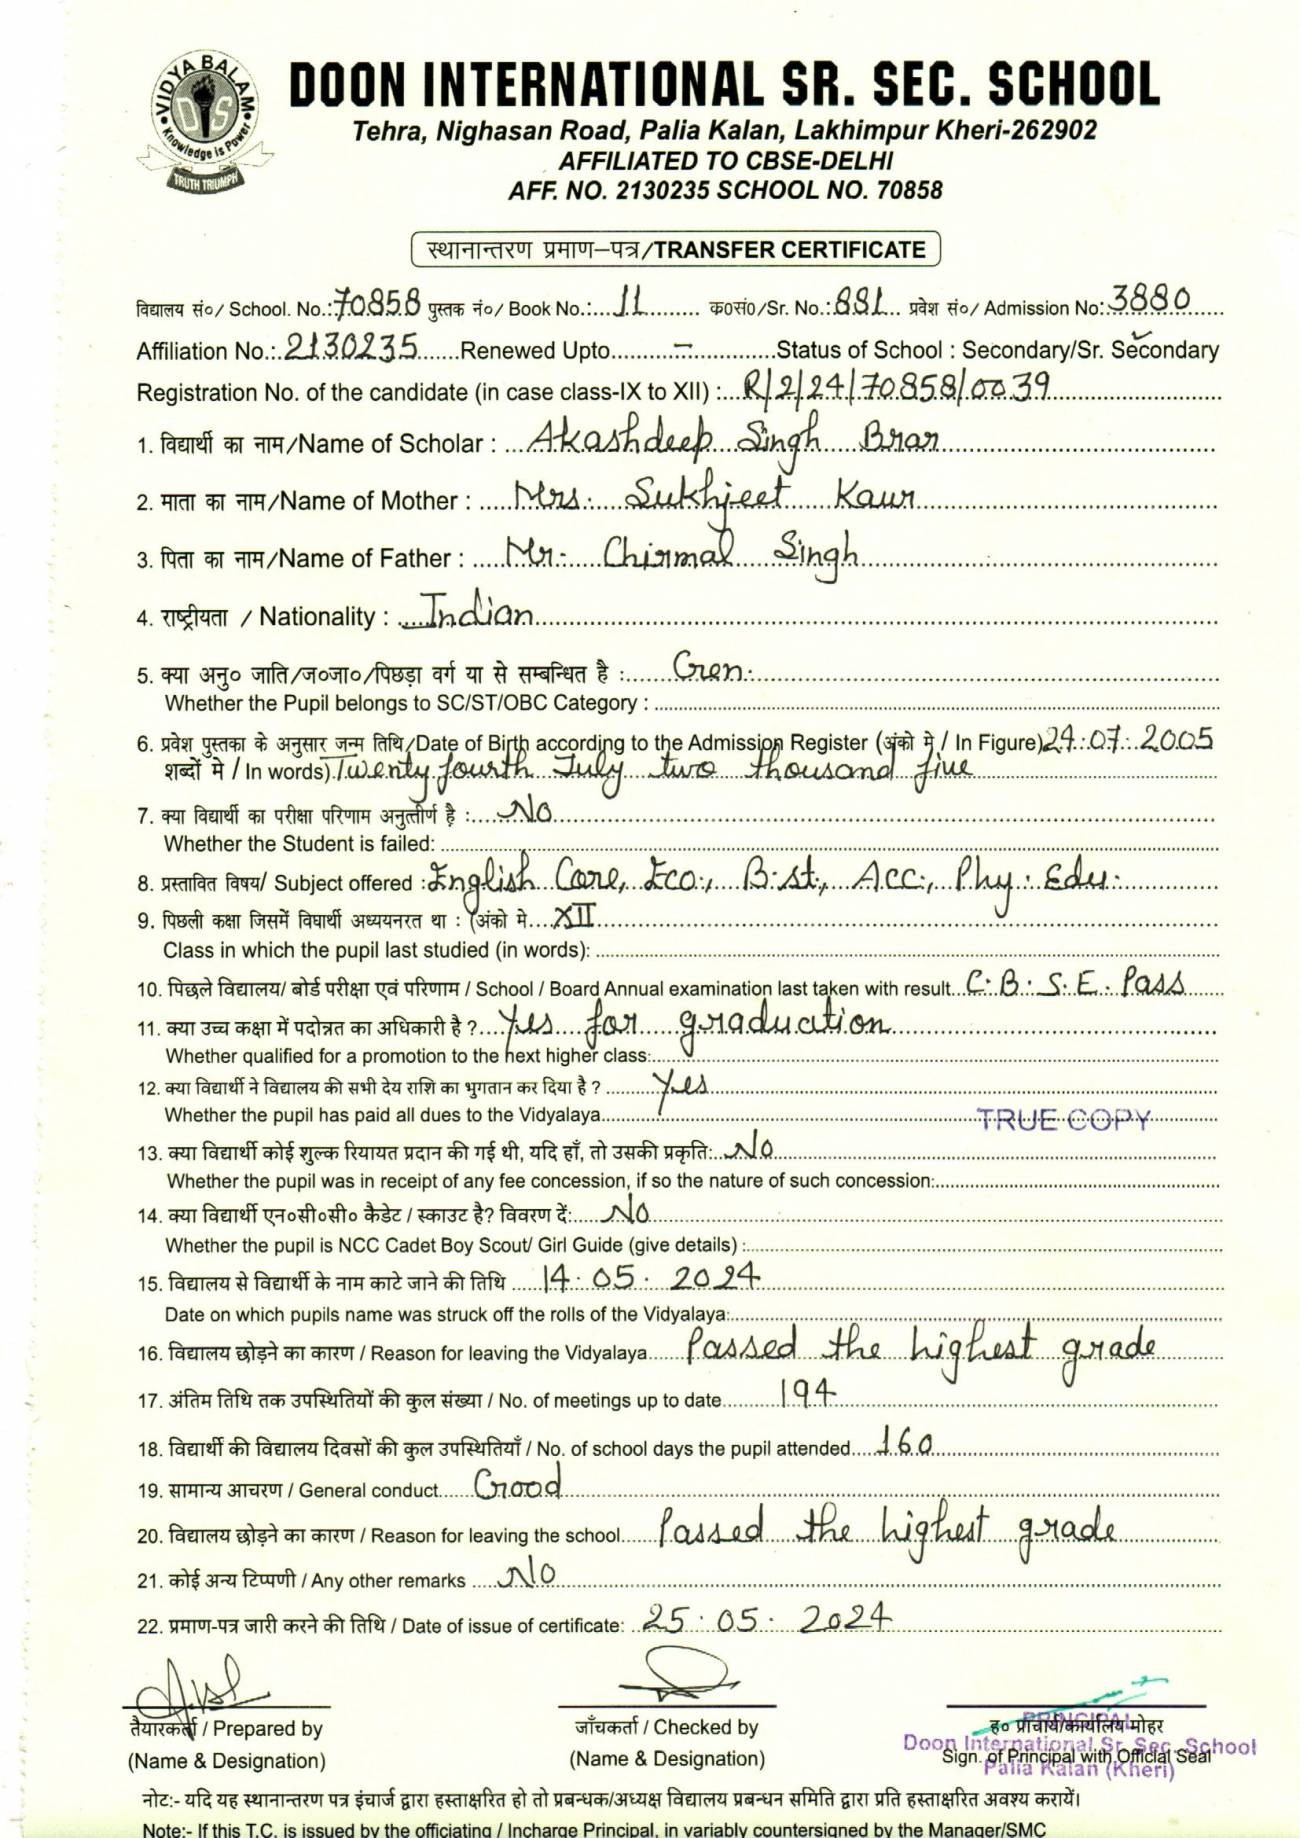 VIDYA BALAM
DIS
Knowledge is Power
TRUTH TRIUMPH
DOON INTERNATIONAL SR. SEC. SCHOOL
Tehra, Nighasan Road, Palia Kalan, Lakhimpur Kheri-262902
AFFILIATED TO CBSE-DELHI
AFF. NO. 2130235 SCHOOL NO. 70858
स्थानान्तरण प्रमाण–पत्र/TRANSFER CERTIFICATE
विद्यालय सं०/ School. No.: 70858 पुस्तक नं०/ Book No.: 11 क0सं0/Sr. No.: 881 प्रवेश सं०/ Admission No: 3880
Affiliation No.: 2130235 Renewed Upto – Status of School : Secondary/Sr. Secondary
Registration No. of the candidate (in case class-IX to XII) : R/2/24/70858/0039
1. विद्यार्थी का नाम/Name of Scholar : Akashdeep Singh Brar
2. माता का नाम/Name of Mother : Mrs. Sukhjeet Kaur
3. पिता का नाम/Name of Father : Mr. Chirmal Singh
4. राष्ट्रीयता / Nationality : Indian
5. क्या अनु० जाति/ज०जा०/पिछड़ा वर्ग या से सम्बन्धित है : Gen.
Whether the Pupil belongs to SC/ST/OBC Category :
6. प्रवेश पुस्तका के अनुसार जन्म तिथि/Date of Birth according to the Admission Register (अंको मे / In Figure) 24.07.2005
शब्दों मे / In words) Twenty fourth July two thousand five
7. क्या विद्यार्थी का परीक्षा परिणाम अनुत्तीर्ण है : No
Whether the Student is failed:
8. प्रस्तावित विषय/ Subject offered : English Core, Eco., B.st., Acc., Phy. Edu.
9. पिछली कक्षा जिसमें विघार्थी अध्ययनरत था : (अंको मे XII
Class in which the pupil last studied (in words):
10. पिछले विद्यालय/ बोर्ड परीक्षा एवं परिणाम / School / Board Annual examination last taken with result C.B.S.E. Pass
11. क्या उच्च कक्षा में पदोन्नत का अधिकारी है ? Yes for graduation
Whether qualified for a promotion to the next higher class:
12. क्या विद्यार्थी ने विद्यालय की सभी देय राशि का भुगतान कर दिया है ? Yes
Whether the pupil has paid all dues to the Vidyalaya
TRUE COPY
13. क्या विद्यार्थी कोई शुल्क रियायत प्रदान की गई थी, यदि हाँ, तो उसकी प्रकृति: No
Whether the pupil was in receipt of any fee concession, if so the nature of such concession:
14. क्या विद्यार्थी एन०सी०सी० कैडेट / स्काउट है? विवरण दें: No
Whether the pupil is NCC Cadet Boy Scout/ Girl Guide (give details) :
15. विद्यालय से विद्यार्थी के नाम काटे जाने की तिथि 14.05.2024
Date on which pupils name was struck off the rolls of the Vidyalaya:
16. विद्यालय छोड़ने का कारण / Reason for leaving the Vidyalaya Passed the highest grade
17. अंतिम तिथि तक उपस्थितियों की कुल संख्या / No. of meetings up to date 194
18. विद्यार्थी की विद्यालय दिवसों की कुल उपस्थितियाँ / No. of school days the pupil attended 160
19. सामान्य आचरण / General conduct Good
20. विद्यालय छोड़ने का कारण / Reason for leaving the school Passed the highest grade
21. कोई अन्य टिप्पणी / Any other remarks No
22. प्रमाण-पत्र जारी करने की तिथि / Date of issue of certificate: 25.05.2024
तैयारकर्ता / Prepared by जाँचकर्ता / Checked by ह० प्राचार्य/कार्यालय मोहर
PRINCIPAL
Doon International Sr. Sec. School
(Name & Designation) (Name & Designation) Sign. of Principal with Official Seal
Palia Kalan (Kheri)
नोट:- यदि यह स्थानान्तरण पत्र इंचार्ज द्वारा हस्ताक्षरित हो तो प्रबन्धक/अध्यक्ष विद्यालय प्रबन्धन समिति द्वारा प्रति हस्ताक्षरित अवश्य करायें।
Note:- If this T.C. is issued by the officiating / Incharge Principal, in variably countersigned by the Manager/SMC